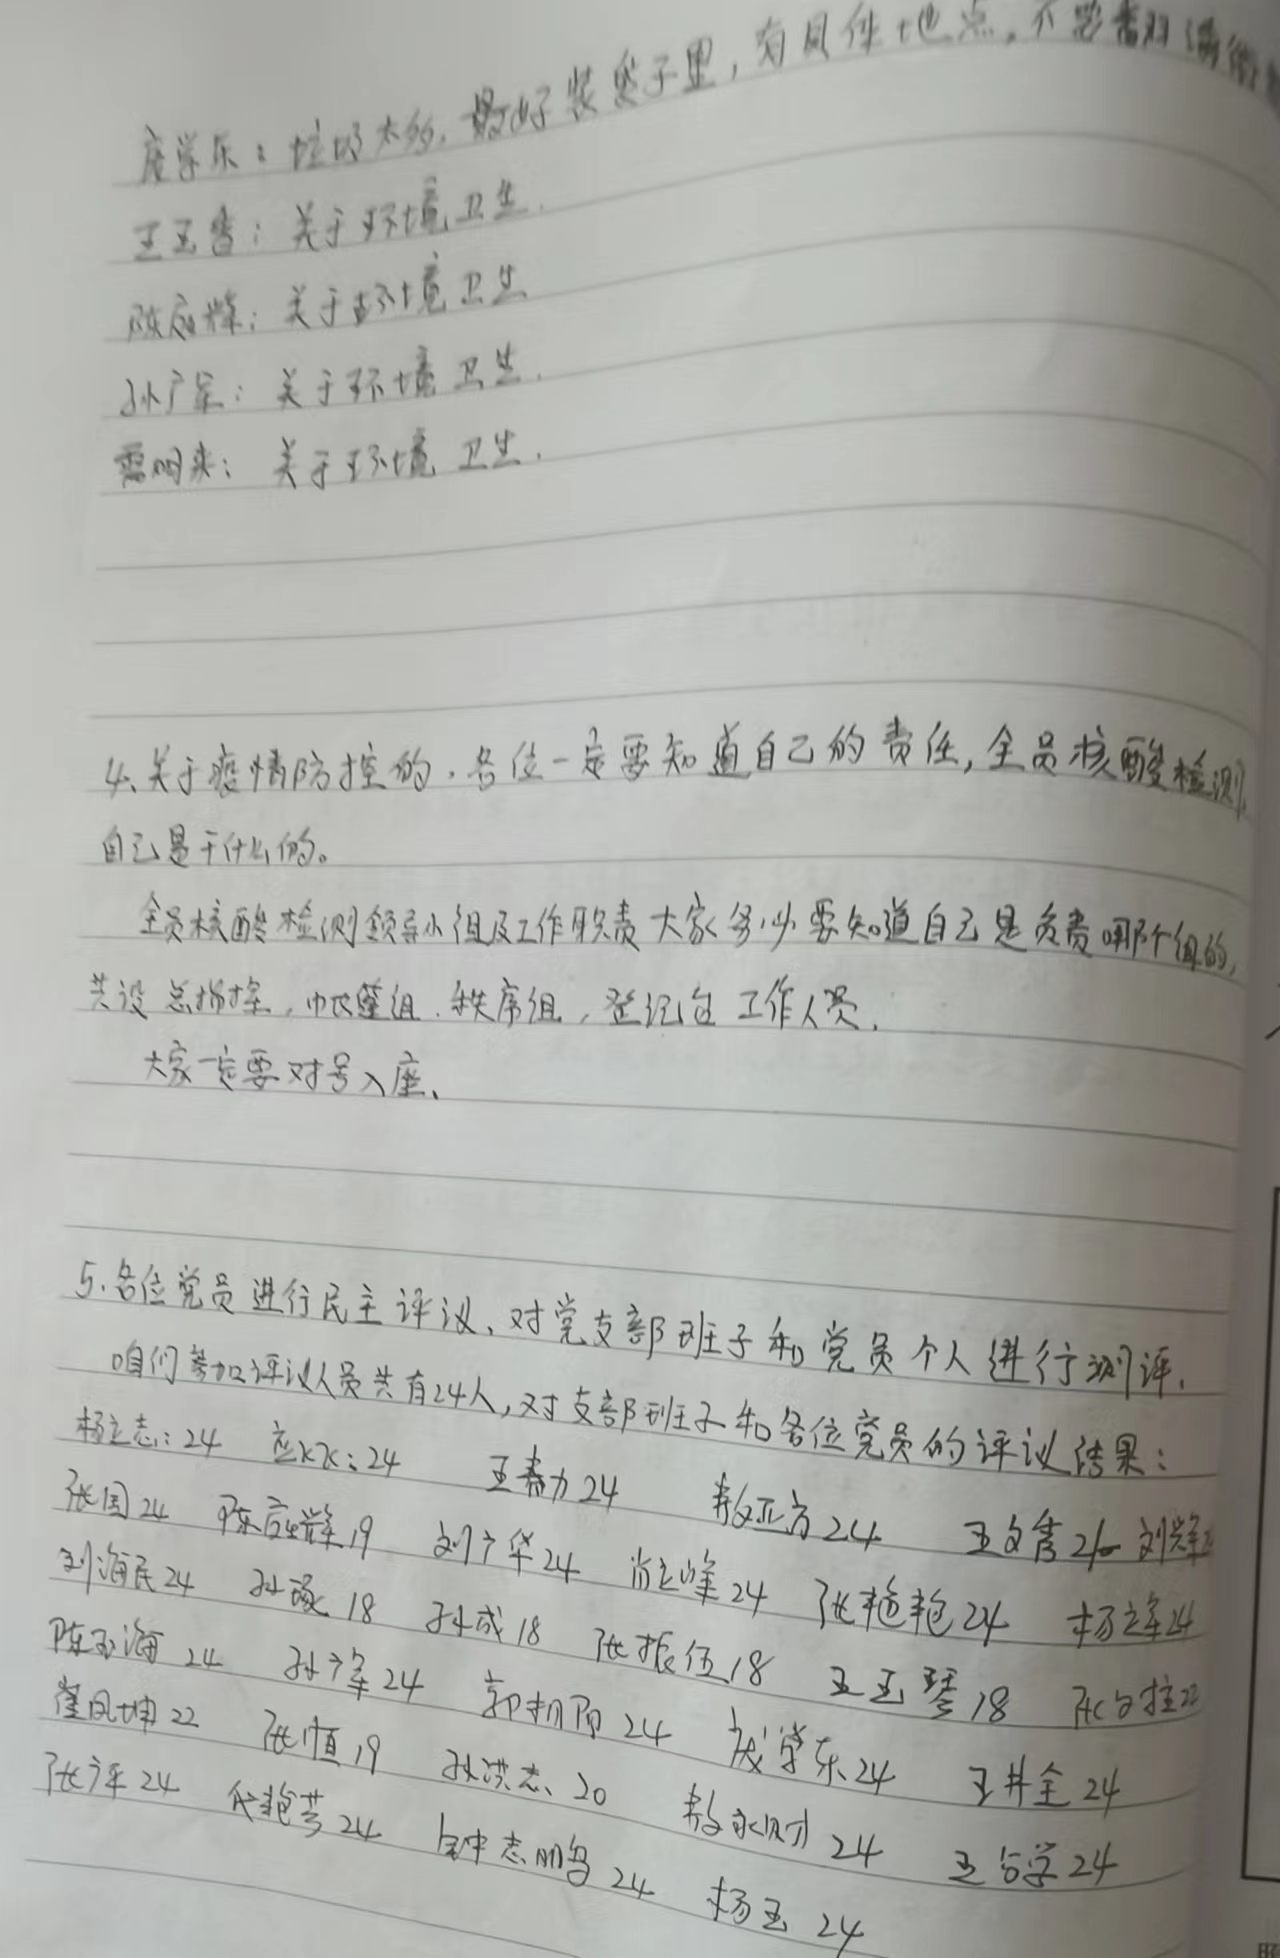 庞学东：垃圾太多，最好装袋子里，有具体地点，不要
王玉香：关于环境卫生.
陈应辉：关于环境卫生
孙广军：关于环境卫生.
关于环境卫生.
4、关于疫情防控的，各位一定要知道自己的责任，全员核酸检测，
自己是干什么的。
全员核酸检测领导小组及工作职责大家务必要知道自己是负责哪个组的，
共设总指挥，帐篷组.秩序组，登记 工作人员，
大家一定要对号入座、
5.各位党员进行民主评议、对党支部班子和党员个人进行测评，
咱们参加评议人员共有24人，对支部班子和各位党员的评议结果：
杨立志：24 24 王春力24 敖亚方24 王文 刘
张国24 陈应辉19 刘广华24 肖立峰24 张艳艳24 杨立军24
刘海民24 孙 18 孙成18 张振伍18 王玉琴18 张
陈玉海24 孙广军24 郭朝阳24 庞学东24 王井全24
崔凤坤22 张恒19 孙洪志、20 敖永财24 王 学24
张广军24 代艳芳24 志鹏24 杨玉24